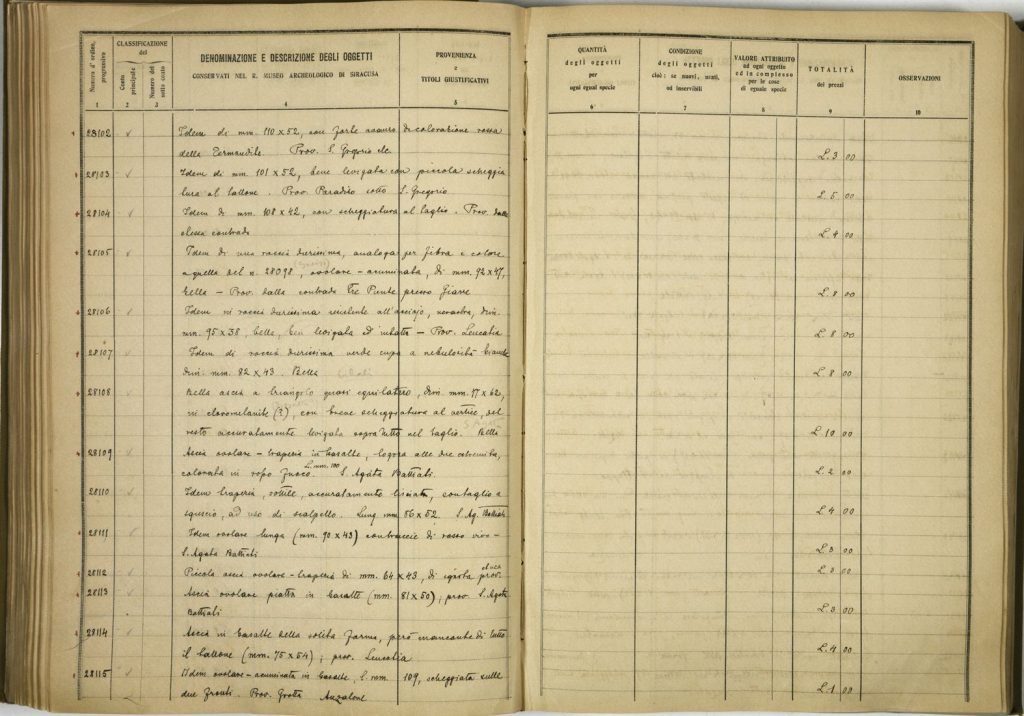 Numero d'ordine progressivo
CLASSIFICAZIONE
del
Conto principale
Numero del sotto conto
DENOMINAZIONE E DESCRIZIONE DEGLI OGGETTI
CONSERVATI NEL R. MUSEO ARCHEOLOGICO DI SIRACUSA
PROVENIENZA
e
TITOLI GIUSTIFICATIVI
1 2 3 4 5
QUANTITÀ
degli oggetti
per
ogni egual specie
CONDIZIONE
degli oggetti
cioè: se nuovi, usati,
od inservibili
VALORE ATTRIBUITO
ad ogni oggetto
ed in complesso
per le cose
di eguale specie
TOTALITÀ
dei prezzi
OSSERVAZIONI
6 7 8 9 10
28102 Idem di mm. 110 x 52, con forte di colorazione rossa
della Prov. S. Gregorio etc. L. 3 00
28103 Idem di mm. 101 x 52, bene levigata con piccola scheggia
tura al tallone. Prov. Paradiso sotto S. Gregorio L. 5 00
28104 Idem di mm. 108 x 42, con scheggiatura al taglio. Prov. dalla
stessa contrada L. 4 00
28105 Idem di una roccia durissima, analoga per fibra e colore
a quella del n. 28098, ovolare - acuminata, di mm. 92 x 47,
bella - Prov. dalla contrada Tre Punte presso Giarre L. 8 00
28106 Idem in roccia durissima resistente all'acciaio, nerastra, dim.
mm. 95 x 38, bella, ben levigata ed intatta - Prov. Leucatia L. 8 00
28107 Idem di roccia durissima verde cupa a nebulosità bianche
dim. mm. 82 x 43. Bella L. 8 00
28108 Bella ascia a triangolo quasi equilatero, dim. mm. 77 x 62,
in cloromelanite (?), con breve scheggiatura al vertice, del
resto accuratamente levigata sopratutto nel taglio. Belli L. 10 00
28109 Ascia ovolare - trapezia in basalte, logora alle due estremità,
colorata in rosso fuoco. L. mm. 100 S. Agata Battiati. L. 2 00
28110 Idem trapezia, sottile, accuratamente lisciata, con taglio a
sguscio, ad uso di scalpello. Lung. mm. 56 x 52. S. Ag. Battiati L. 4 00
28111 Idem ovolare lunga (mm. 90 x 43) con traccie di rosso vivo -
S. Agata Battiati L. 3 00
28112 Piccola ascia ovolare - trapezia di mm. 64 x 43, di prov. L. 2 00
28113 Ascia ovolare piatta in basalte (mm. 81 x 50); prov. S. Agata
Battiati L. 3 00
28114 Ascia in basalte della solita forma, però mancante di tutto
il tallone (mm. 75 x 54); prov. Leucatia L. 4 00
28115 Idem ovolare - acuminata in basalte, l. mm. 109, scheggiata sulle
due fronti. Prov. Grotta Auzalone L. 1 00